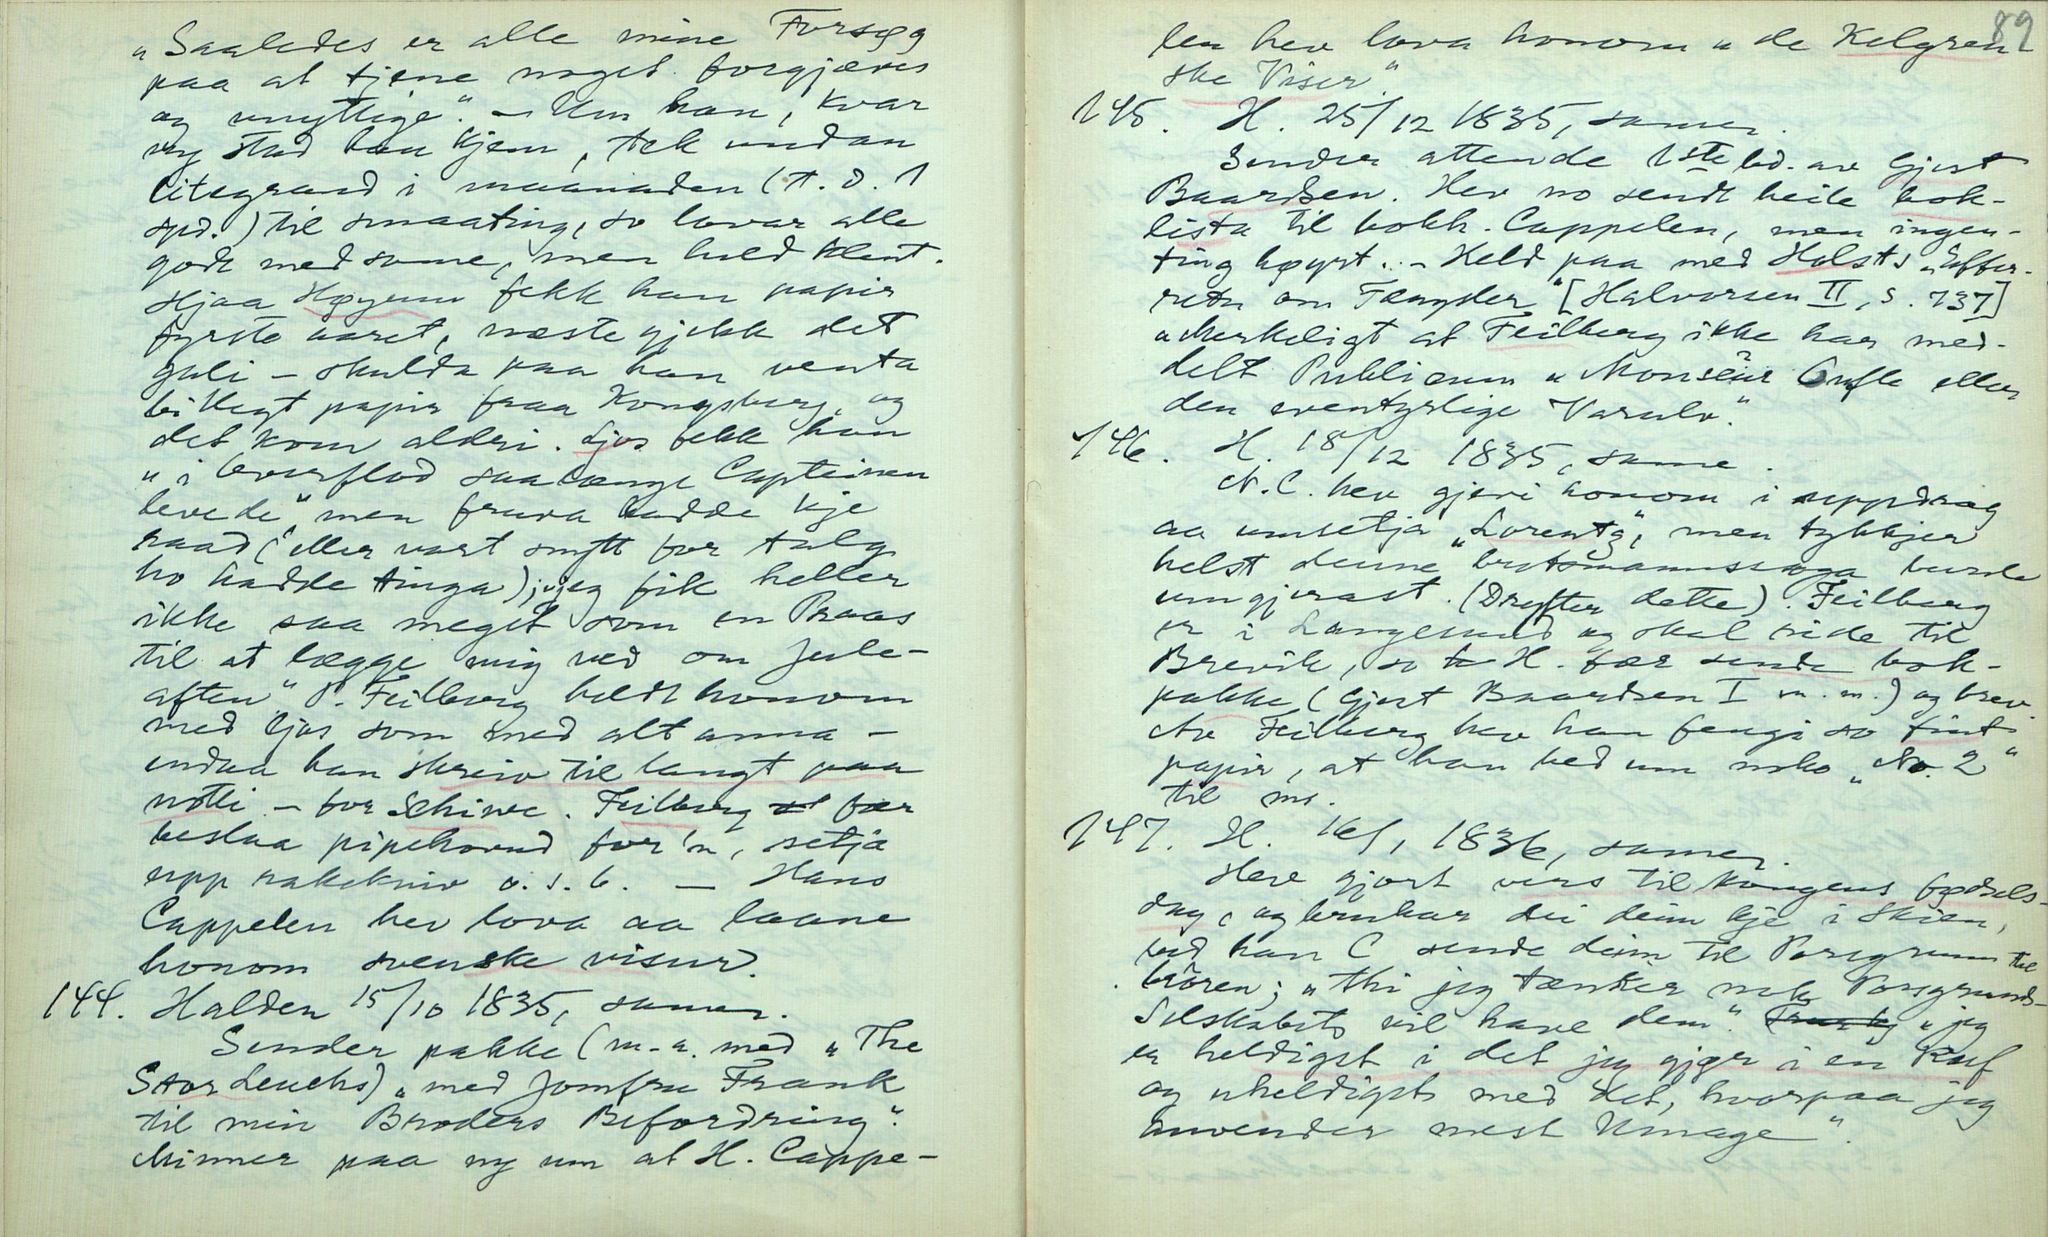 „Saaledes er alle mine Forsøg
paa at tjene noget forgjæves
og unyttige“. — Um han, kvar
ny stad han kjem, tek undan
litegrand i maanaden (t. d. 1
spd.) til smaating, so lovar alle
godt med same, men held klent.
Hjaa Høyum fekk han papir
fyrste aaret, næste gjekk det
gali — skulda paa han venta
billegt papir fraa Kongsberg, og
det kom aldri. Ljos fekk han
„i Overflod saalænge Capteinen
levede“, men fruva hadde kje
raad (eller vart snytt for talg
ho hadde tinga); „jeg fik heller
ikke saa meget som en Praas
til at lægge mig ved om Jule-
aften“. Feilberg heldt honom
med ljos som med alt anna —
endaa han skreiv til langt paa
notti — for Schiwe. Feilberg fær
beslaa pipehovud for'n, setja
upp rakekniv o. s. b. — Hans
Cappelen hev lova aa laane
honom svenske visur.
144. Halden 15/10 1835, samer.
Sender pakke (m. a. med „The
Stor Leuchs) „med Jomfru Frank
til min Broders Befordring“.
Minner paa ny um at H. Cappe-
89
len hev lova honom „de Kelgren-
ske Viser“
145. H. 25/12 1835, samer.
Sender attende 1ste bd. av Gjest
Baardsen. Hev no sendt heile bok-
lista til bokh. Cappelen, men ingen-
ting høyrt. — Held paa med Holsts „Efter-
retn om Fængsler“ [Halvorsen II, s. 737]
„Merkeligt at Feilberg ikke har med-
delt Publicum „Monseur
den eventyrlige Varulv“.
146. H. 18/12 1835, same.
N. C. hev gjevi honom i uppdrag
aa umsetja „Lorentz“, men tykkjer
helst denne brotsmannssoga burde
umgjerast. (Drøfter dette). Feilberg
er i Langesund og skal ride til
Brevik, so H. fær sende bok-
pakke (Gjest Baardsen I m. m.) og brev.
Av Feilberg hev han fengi so fint
papir, at han bed um noko „No. 2“
til ms.
147. H. 16/1 1836, samer.
Hev gjort vers til kongens fødsels-
dag, og brukar dei deim kje i Skien,
bed han C sende deim til Porsgrunn til
broren; „thi jeg tænker nok Porsgrunds-
Selskabet vil have dem“. „jeg
er heldigst i det jeg gjør i en Ruf
og uheldigst med det, hvorpaa jeg
anvender mest Umage“.